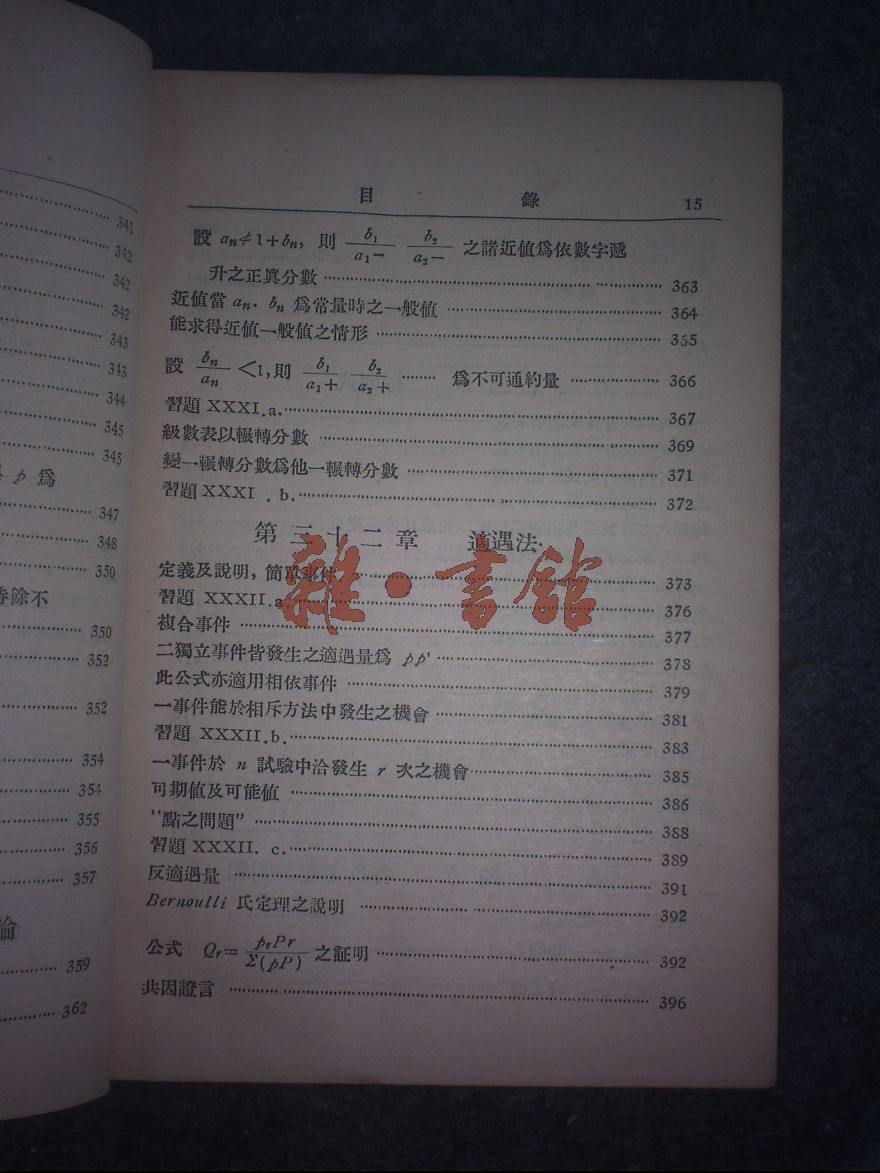 341
342
342
342
343
343
344
345
345
p 爲
347
348
350
350
352
352
354
354
355
356
357
論
359
362
目 錄 15
設 aₙ≠1+bₙ, 則 b₁/a₁− b₂/a₂− 之諸近值爲依數字遞
升之正眞分數 363
近值當 aₙ、bₙ 爲常量時之一般值 364
能求得近值一般值之情形 365
設 bₙ/aₙ <1,則 b₁/a₁+ b₂/a₂+ …… 爲不可通約量 366
習題 XXXI.a. 367
級數表以輾轉分數 369
變一輾轉分數爲他一輾轉分數 371
習題 XXXI . b. 372
第三十二章 適遇法
定義及說明, 簡單事件 373
習題 XXXII.a 376
複合事件 377
二獨立事件皆發生之適遇量爲 pp' 378
此公式亦適用相依事件 379
一事件能於相斥方法中發生之機會 381
習題 XXXII.b. 383
一事件於 n 試驗中洽發生 r 次之機會 385
可期值及可能值 386
"點之問題" 388
習題 XXXII. c. 389
反適遇量 391
Bernoulli 氏定理之說明 392
公式 Qᵣ= pᵣPᵣ/Σ(pP) 之証明 392
共因證言 396
雜·書館